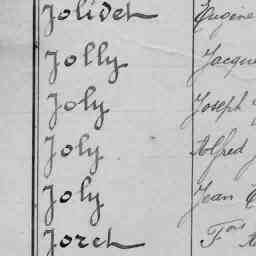 Jolivet Eugène
Jolly Jacque
Joly Joseph
Joly Alfred
Joly Jean
Joret Fois